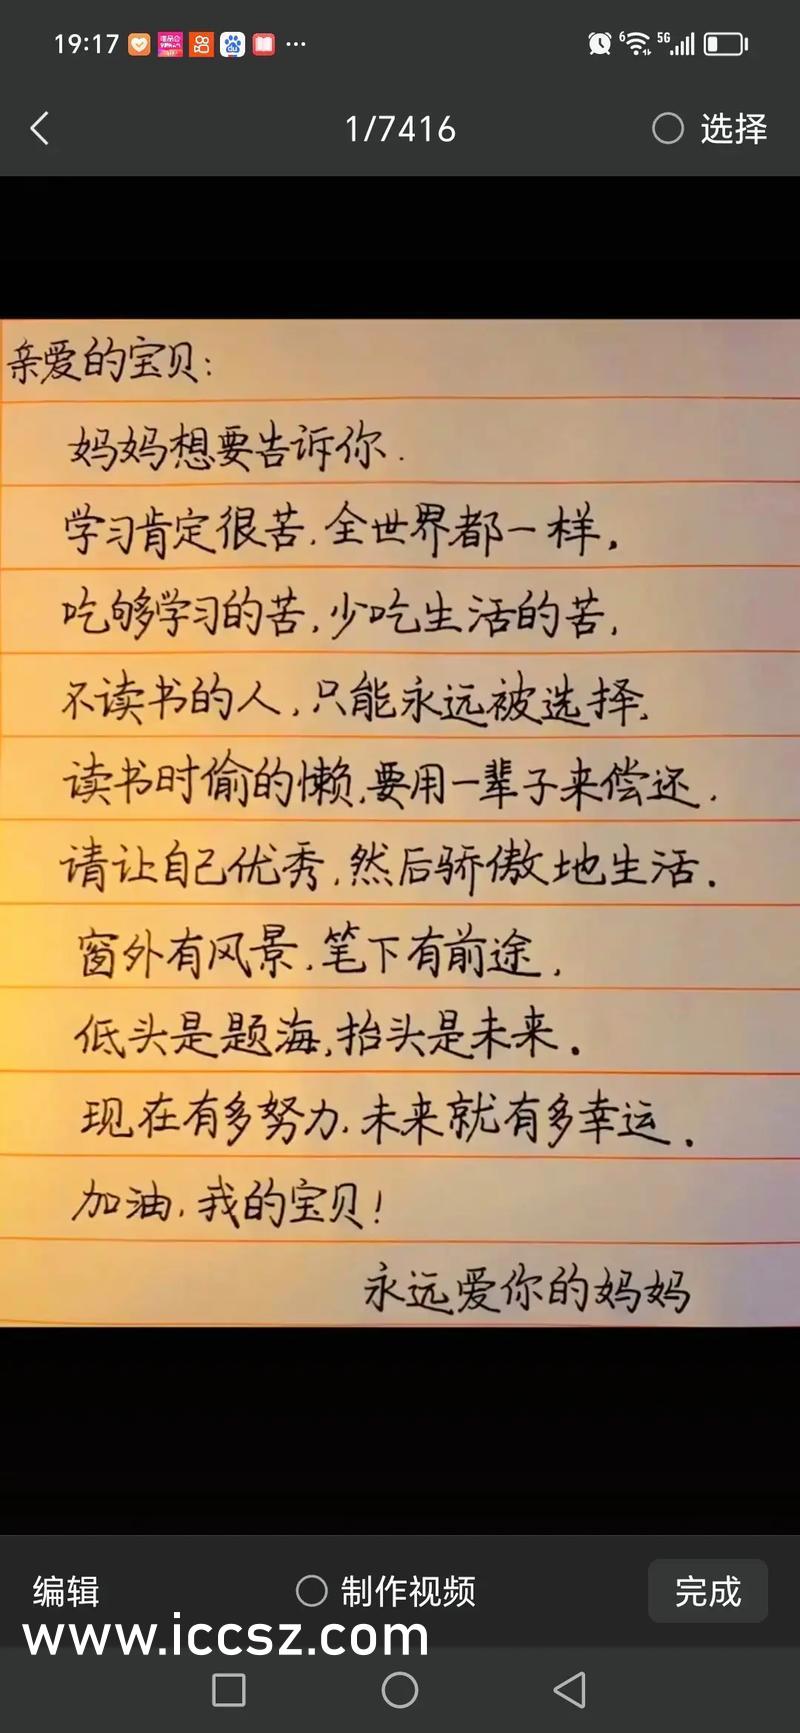 19:17
6 5G
1/7416 选择
亲爱的宝贝:
妈妈想要告诉你.
学习肯定很苦,全世界都一样,
吃够学习的苦,少吃生活的苦,
不读书的人,只能永远被选择,
读书时偷的懒,要用一辈子来偿还.
请让自己优秀,然后骄傲地生活.
窗外有风景,笔下有前途,
低头是题海,抬头是未来.
现在有多努力,未来就有多幸运.
加油,我的宝贝!
永远爱你的妈妈
编辑 制作视频 完成
www.iccsz.com